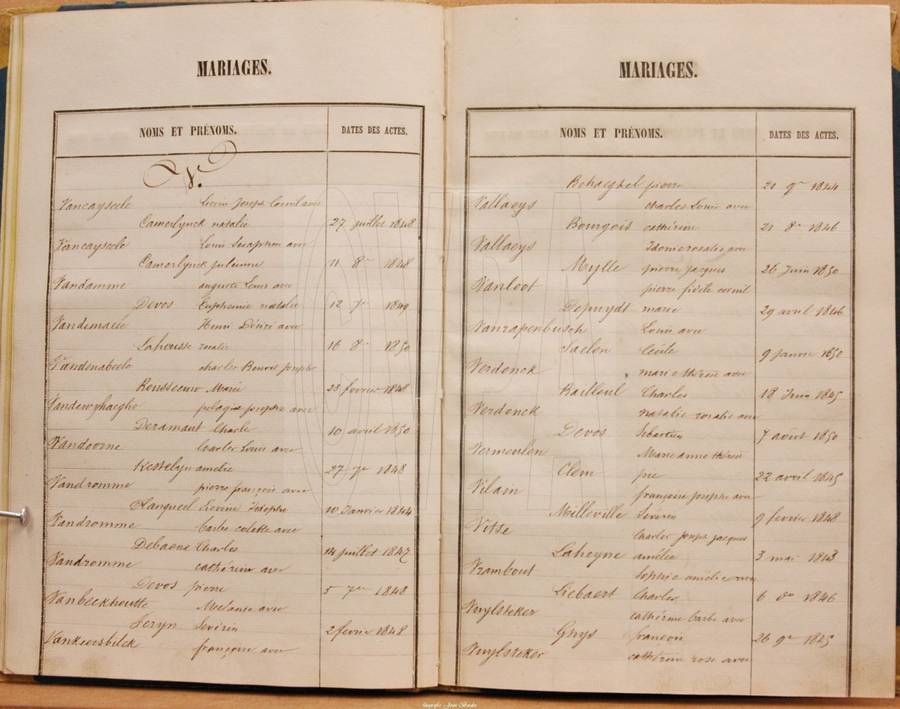 MARIAGES.
NOMS ET PRÉNOMS. DATES DES ACTES.
V.
Vancayseele Louis Joseph Cornil avec
Camerlynck natalie 27 juillet 1848
Vancayseele Louis Seraphin avec
Camerlynck julienne 11 8re 1848
Vandamme auguste Louis avec
Devos Euphemie natalie 12 7re 1849
Vandemaele Henri Désiré avec
Lahousse rosalie 16 8re 1850
Vandenabeele charles Benoit joseph
Rousseeuw Marie 23 fevrier 1848
Vandewynhaeghe pelagie josephe avec
Deramaut Charle 10 avril 1850
Vandoorne Charles Louis avec
Kestelyn amelie 27 7re 1848
Vandromme pierre françois avec
Josephe 10 Janvier 1844
Vandromme barbe colette avec
Debaene Charles 14 juillet 1847
Vandromme cathérine avec
Devos pierre 5 7re 1848
Vanbeckhoutte Melanie avec
Seryn Sévérin 2 fevrier 1848
Vankeersbilck françoise avec
MARIAGES.
NOMS ET PRÉNOMS. DATES DES ACTES.
Behaeghel pierre 21 9re 1844
Vallaeys charles Louis avec
Bourgois cathérine 21 8re 1846
Vallaeys rosalie avec
Mylle pierre jacques 26 Juin 1850
Vanloot pierre fidèle cornil
Depuydt marie 29 avril 1846
Vanrapenbusch Louis avec
Saelen Cécile 9 janvier 1850
Verdonck marie thérèse avec
Bailleul Charles 18 Juin 1845
Verdonck natalie rosalie avec
Devos Sébastien 7 août 1850
Vermeulen Marie anne thérèse
Clem pie 22 avril 1845
Vilain françoise josephe avec
Milleville Sévérin 9 fevrier 1848
Vitse Charles joseph jacques
Laheyne amélie 3 mai 1848
Vrambout Sophie amélie avec
Liebaert Charles 6 1846
Vuylsteker cathérine barbe avec
Ghys francois 26 9re 1845
Vuylsteker cathérine rose avec